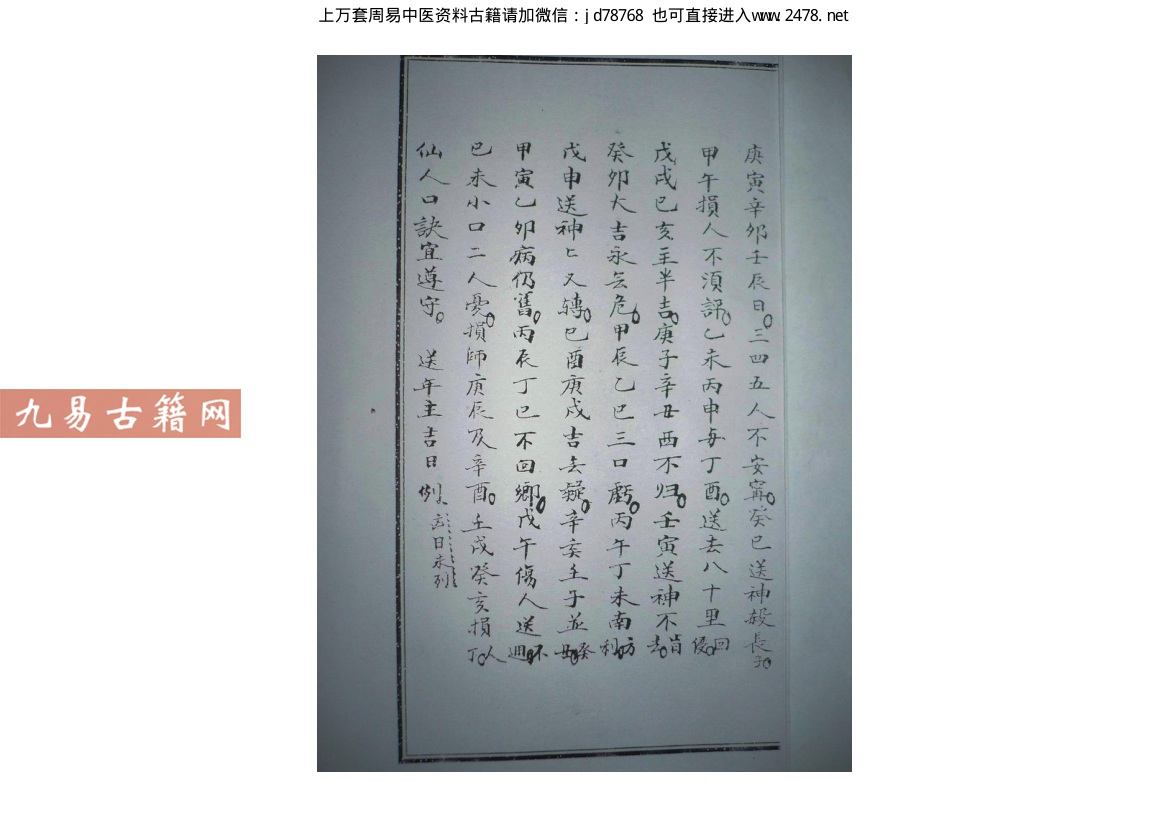 上万套周易中医资料古籍请加微信：jd78768 也可直接进入www.2478.net
庚寅辛卯壬辰日。三四五人不安寧。癸巳送神殺長子。
甲午損人不須。乙未丙申与丁酉。送去八十里回
戊戌巳亥主半吉。庚子辛丑西不归。壬寅送神不肯去。
癸卯大吉永无危。甲辰乙巳三口虧。丙午丁未南方利。
戊申送神匕又轉。巳酉庚戌吉去疑。辛亥壬子並癸丑。
甲寅乙卯病仍舊。丙辰丁巳不回鄉。戊午傷人送不週。
巳未小口二人憂。損師庚辰及辛酉。壬戌癸亥損人丁。
仙人口訣宜遵守。 送年主吉日例 日未列
九易古籍网